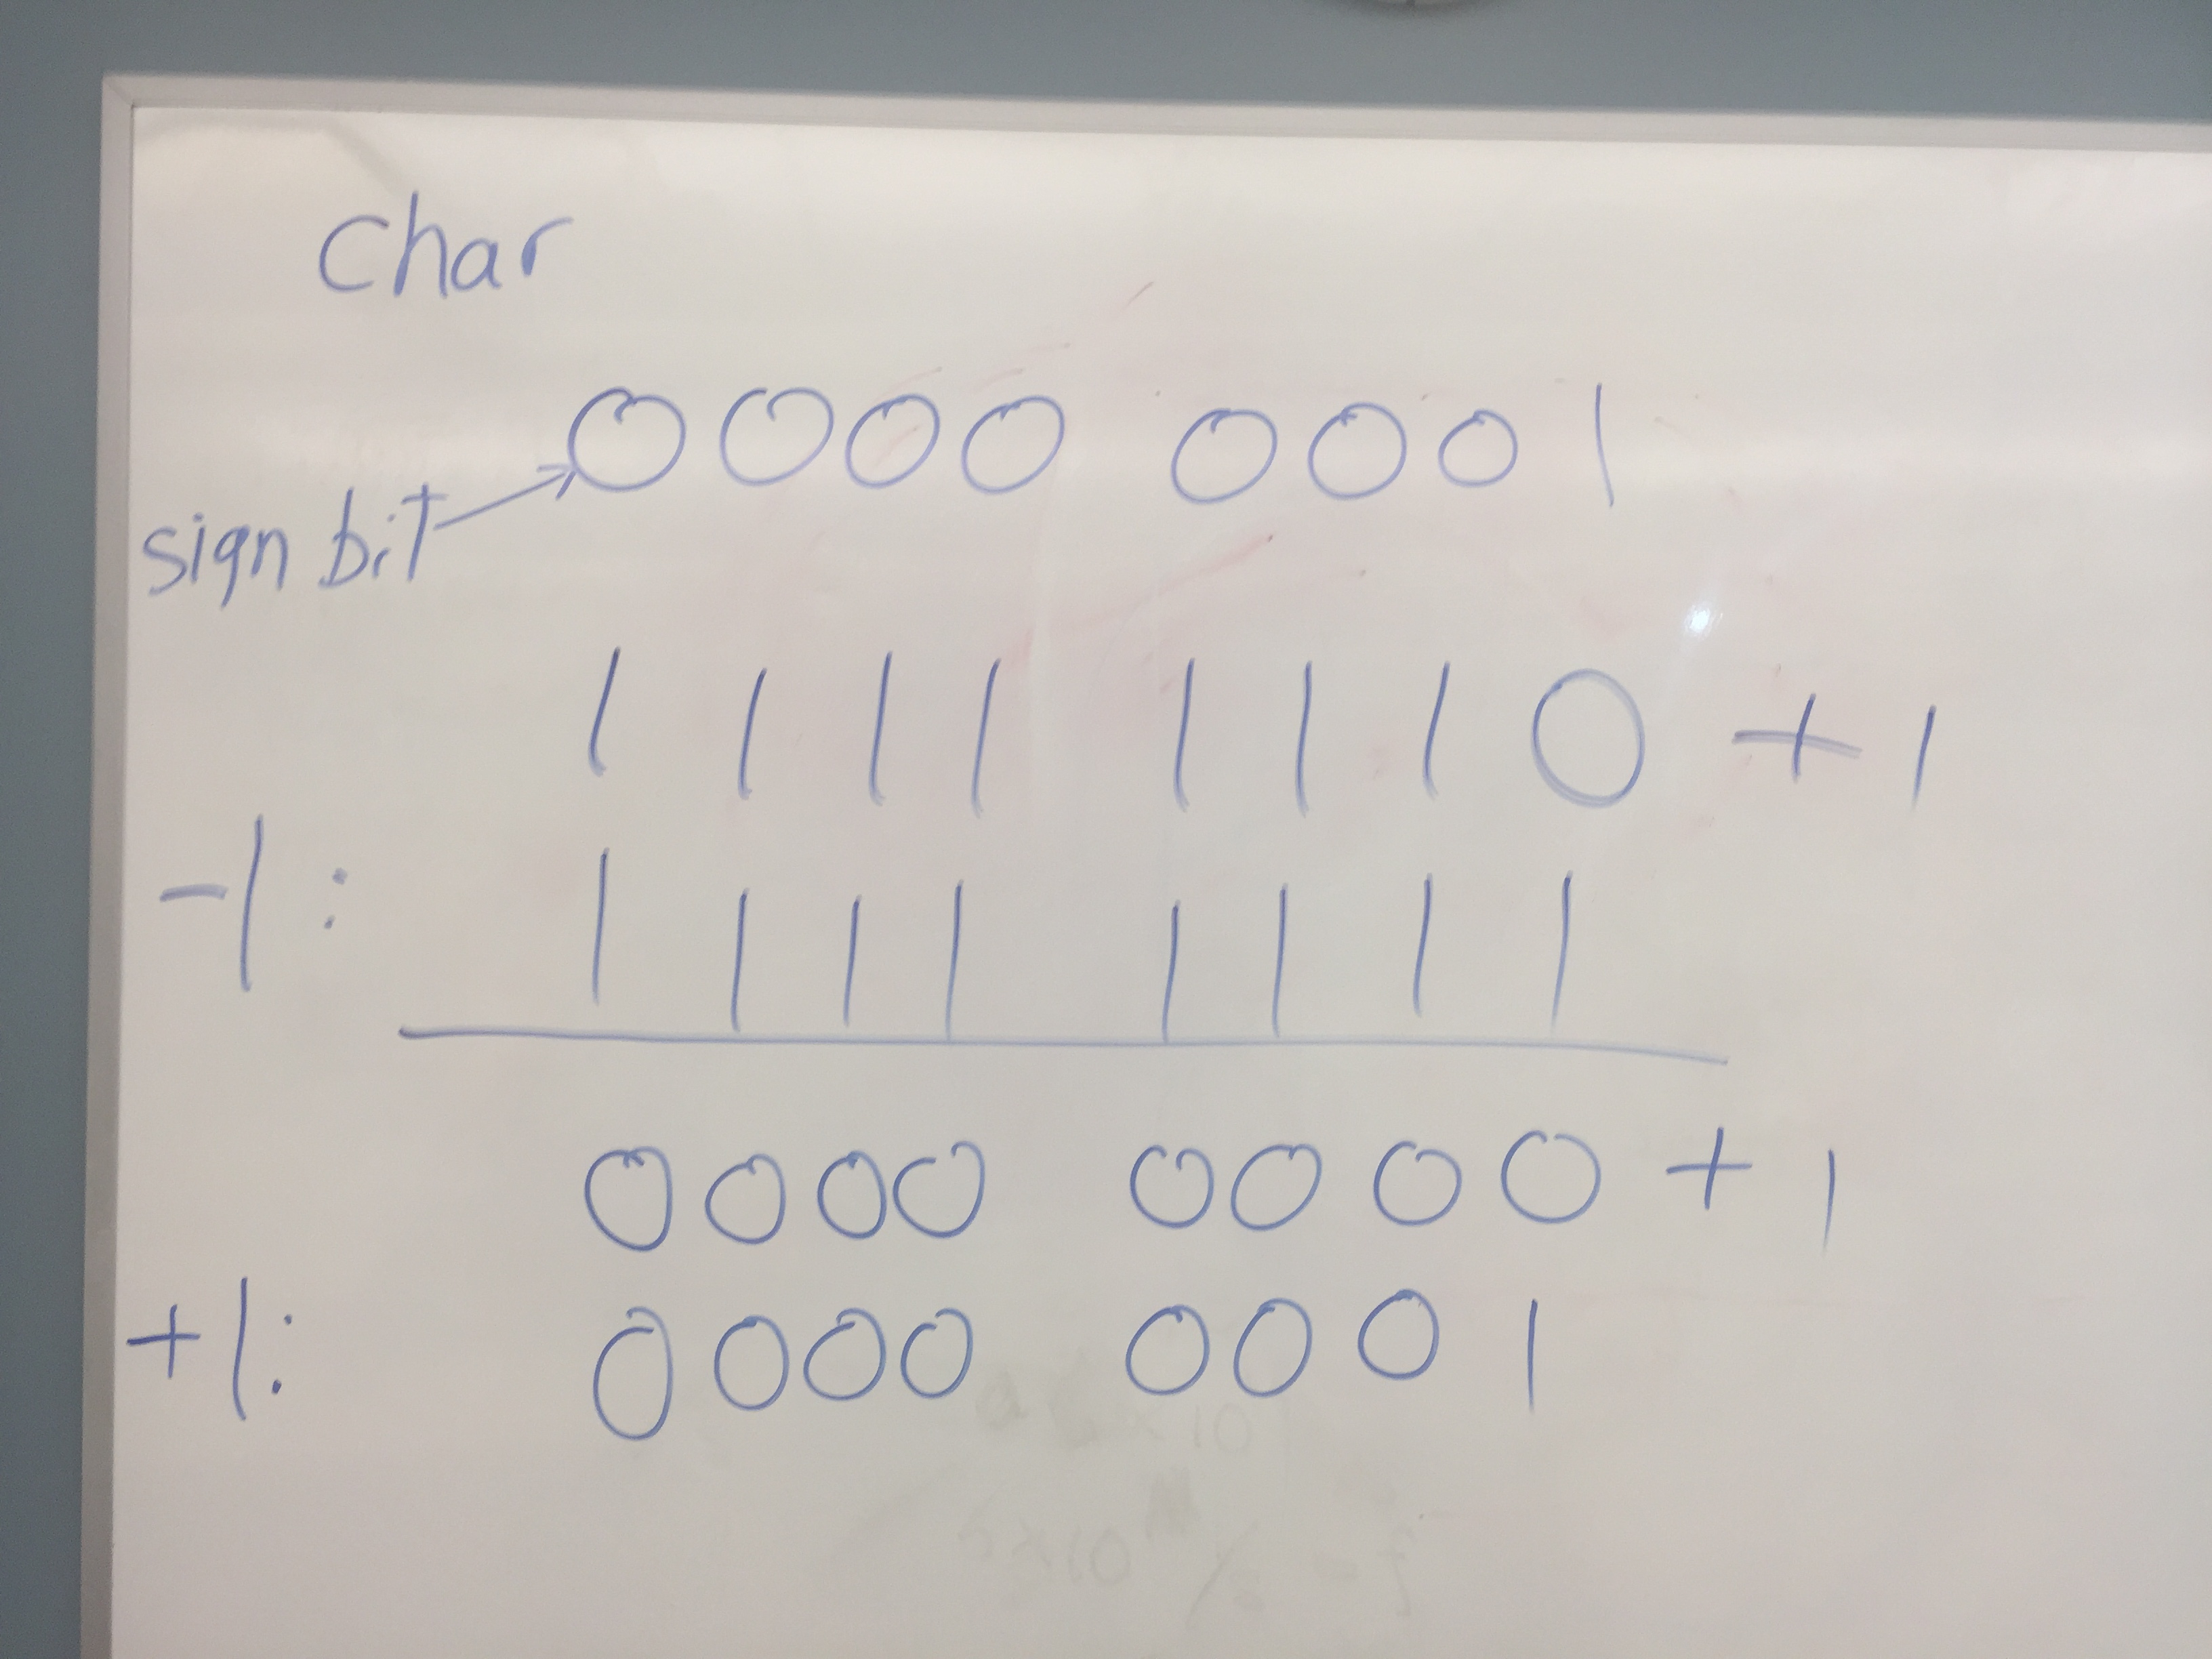 char
0000 0001
sign bit
1111 1110 + 1
-1: 1111 1111
0000 0000 + 1
+1: 0000 0001